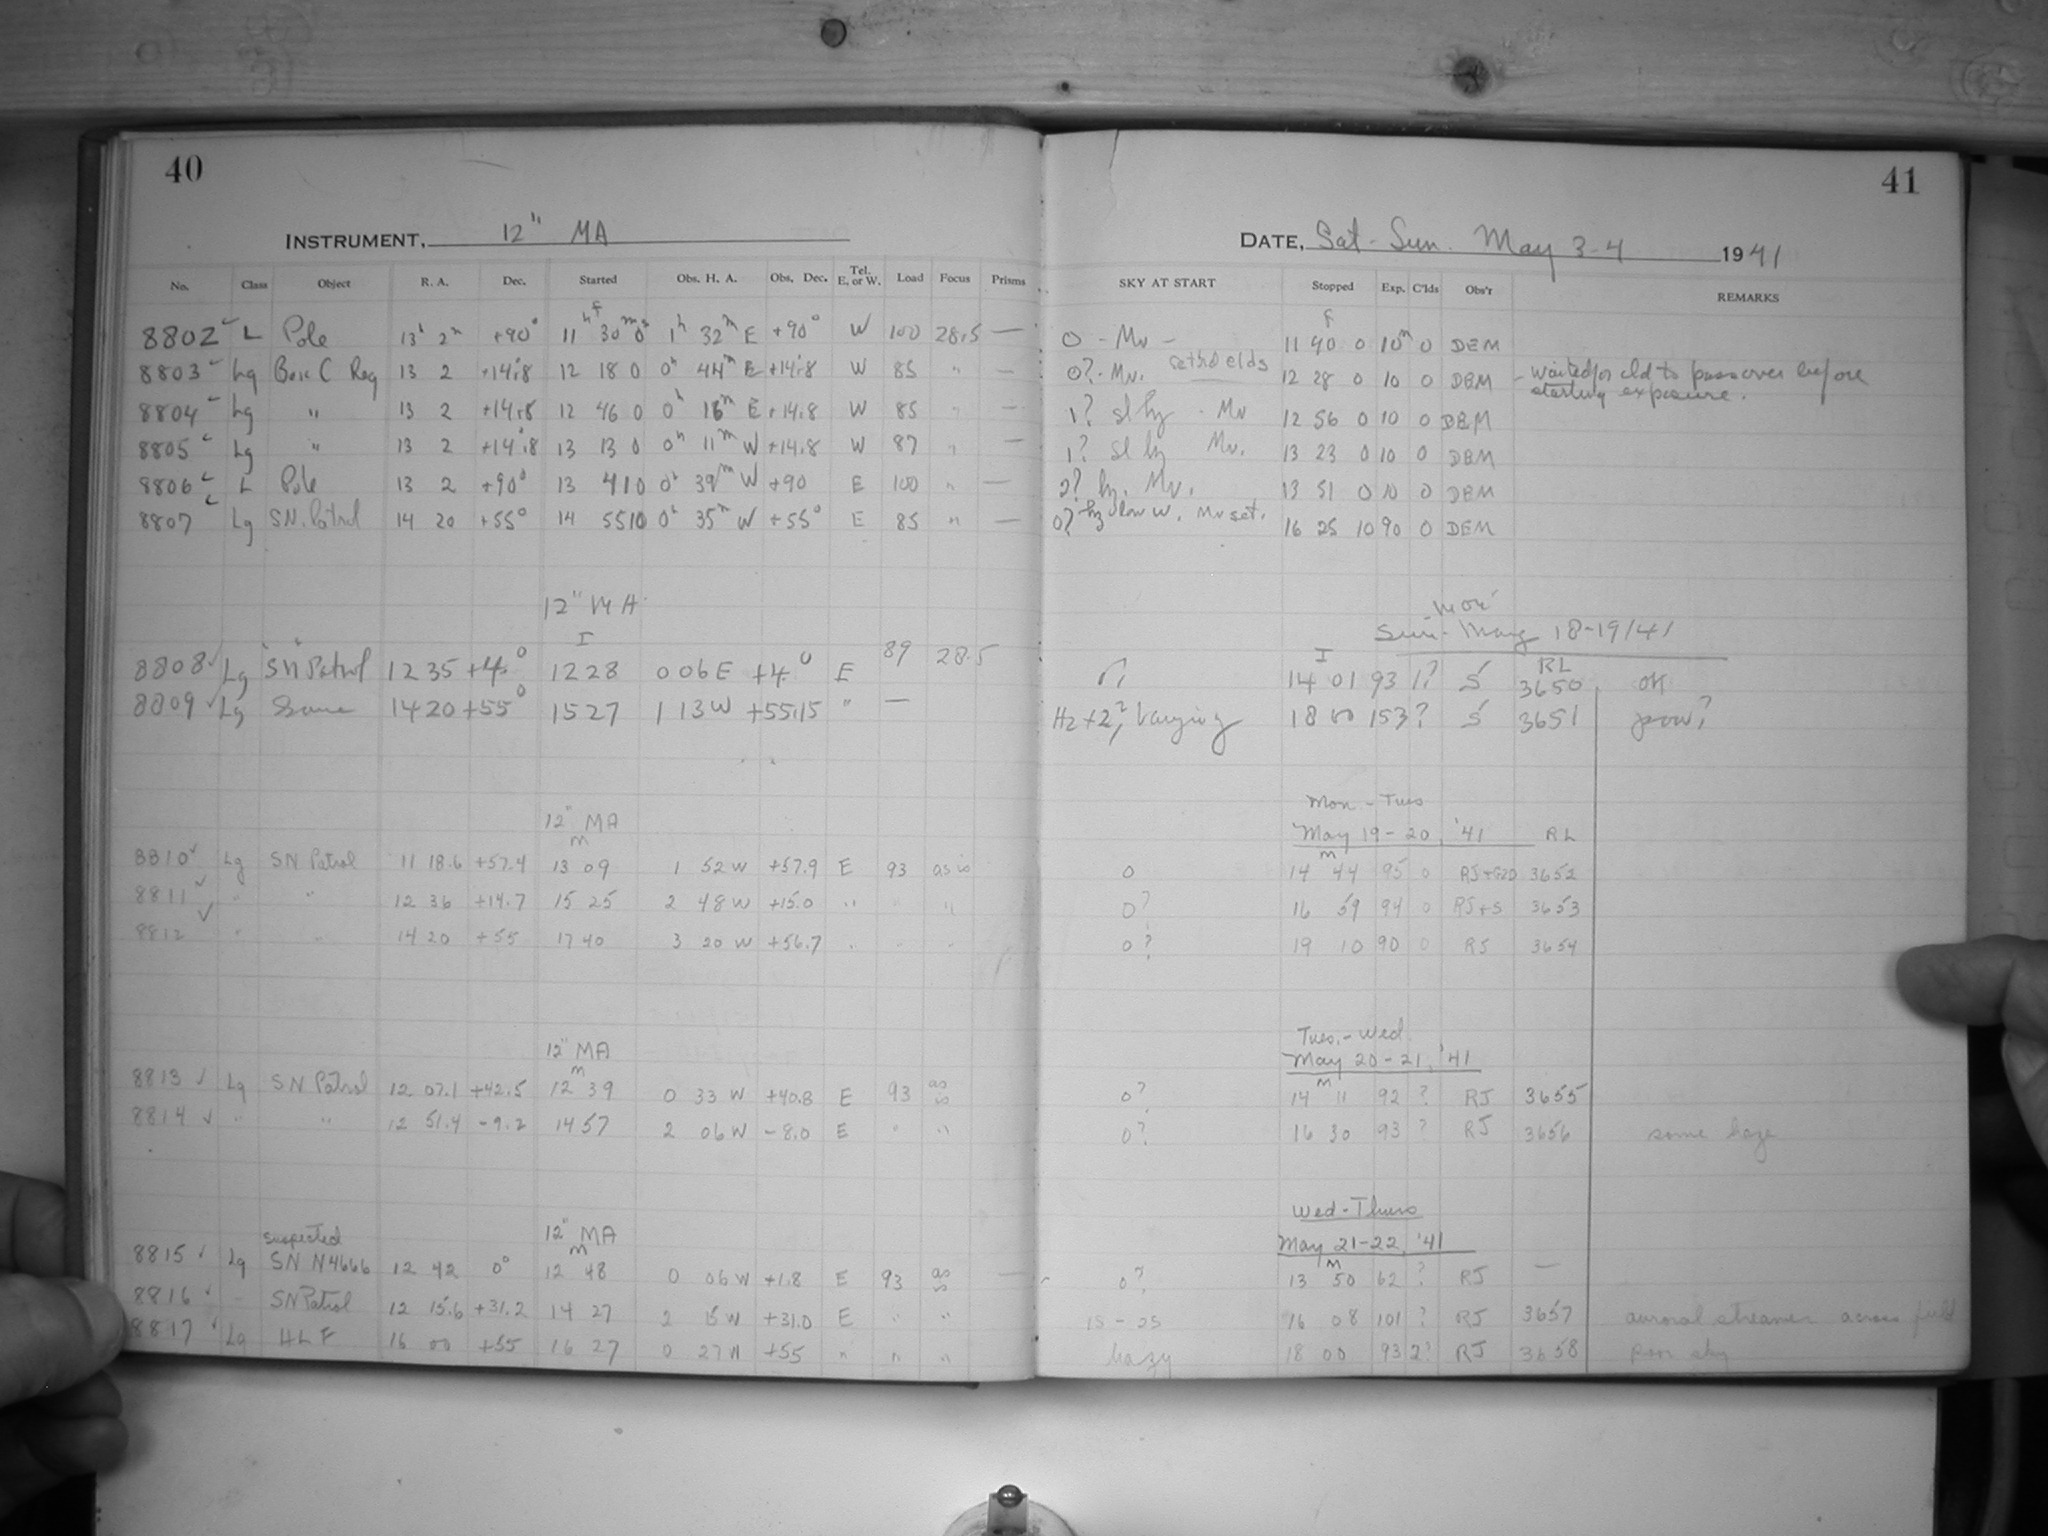 40
INSTRUMENT, 12" MA
No. Class Object R. A. Dec. Started Obs. H. A. Obs. Dec. Tel. E. or W. Load Focus Prisms
8802 L Pole 13h 2m +90° 11h 30m 0s 1h 32m E +90° W 100 28.5 —
8803 Lg Bose C Reg 13 2 +14.8 12 18 0 0h 44m E +14.8 W 85 " —
8804 Lg " 13 2 +14.8 12 46 0 0h 16m E +14.8 W 85 " —
8805 Lg " 13 2 +14.8 13 13 0 0h 11m W +14.8 W 87 " —
8806 L Pole 13 2 +90° 13 41 0 0h 39m W +90 E 100 " —
8807 Lg S.N. Patrol 14 20 +55° 14 55 10 0h 35m W +55° E 85 " —
12" MA
I
8808 Lg "SN" Patrol 12 35 +4° 12 28 0 06 E +4° E 89 28.5
8809 Lg Same 14 20 +55° 15 27 1 13 W +55.15 " —
12" MA
m
8810 Lg SN Patrol 11 18.6 +57.4 13 09 1 52 W +57.9 E 93 as is
8811 " " 12 36 +14.7 15 25 2 48 W +15.0 " " "
8812 " " 14 20 +55 17 40 3 20 W +56.7 " " "
12" MA
m
8813 Lg SN Patrol 12 07.1 +42.5 12 39 0 33 W +40.8 E 93 as is
8814 " " 12 51.4 -9.2 14 57 2 06 W -8.0 E " "
12" MA
m
8815 Lg Suspected SN N4666 12 42 0° 12 48 0 06 W +1.8 E 93 as is —
8816 " SN Patrol 12 15.6 +31.2 14 27 2 15 W +31.0 E " "
8817 Lg HLF 16 00 +55 16 27 0 27 W +55 " " "
41
DATE, Sat - Sun. May 3-4 1941
SKY AT START Stopped Exp. C'lds Obs'r REMARKS
0 - Mn - 11 40 0 10m 0 DEM
0? - Mn. 12 28 0 10 0 DEM - waited for cld to pass over before
starting exposure.
1? sl hz - Mn 12 56 0 10 0 DEM
1? sl hz Mn. 13 23 0 10 0 DEM
2? hz. Mn. 13 51 0 10 0 DEM
0? hz low W. Mn set. 16 25 10 90 0 DEM
Mon
Sun - May 18-19/41
I RL
14 01 93 1? S 3650 OK
Hz + 2?, Varying 18 00 153 ? S 3651 poor?
Mon - Tues
May 19-20, '41 RL
m
0 14 44 95 0 3652
0? 16 59 94 0 RJ+S 3653
0? 19 10 90 0 RJ 3654
Tues. - Wed.
May 20-21, '41
m
0? 14 11 92 ? RJ 3655
0? 16 30 93 ? RJ 3656 some haze
Wed - Thurs
May 21-22, '41
m
0? 13 50 62 ? RJ —
1S - 2S 16 08 101 ? RJ 3657 auroral streamer across field
hazy 18 00 93 2? RJ 3658 poor sky